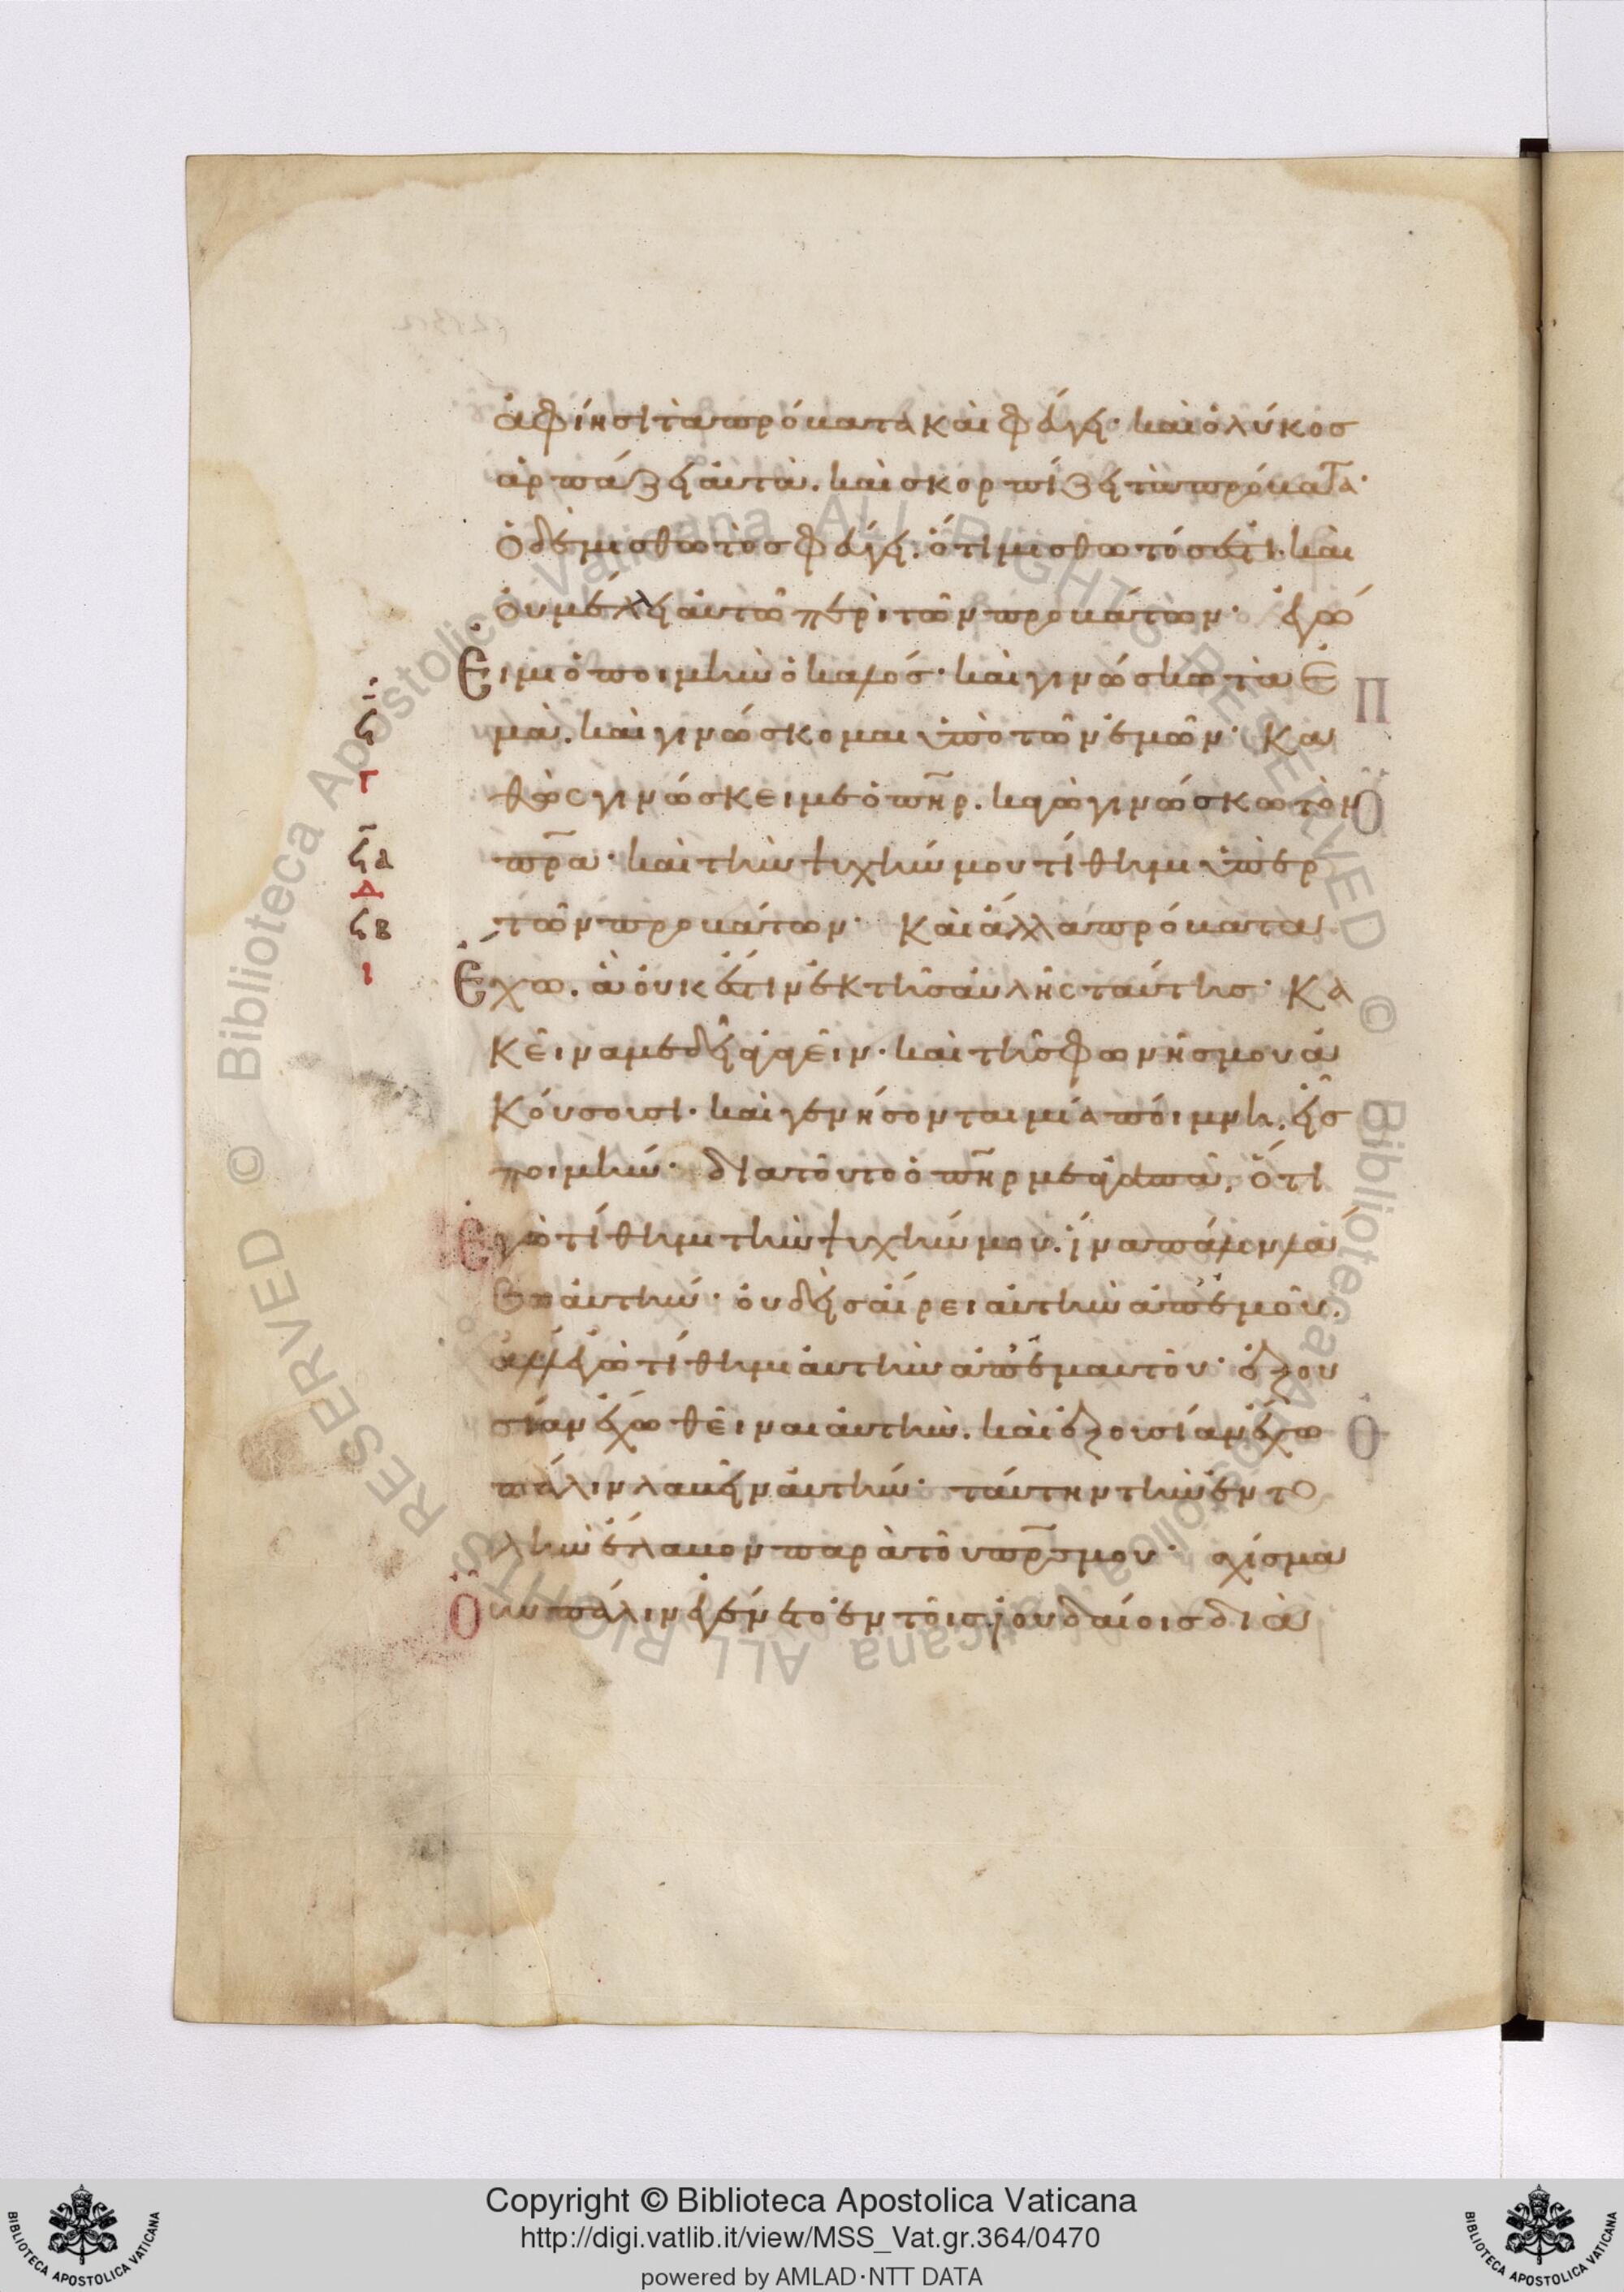 ἀφίησι τὰ πρόβατα καὶ φέυγει· καὶ ὁ λύκος
ἁρπάζει ἀυτὰ. καὶ σκορπίζει τὰ πρόβατα·
ὁ δὲ μισθωτὸς φέυγει. ὅτι μισθωτός ἐστι. καὶ
ὀυ μέλλει ἀυτῶ περὶ τῶν προβάτων· ἐγώ
Ειμι ὁ ποιμὴν ὁ καλός· καὶ γινώσκω τὰ ἐ
μὰ. καὶ γινώσκομαι ὑπὸ τῶν ἐμῶν· Κα
θὼς γινώσκει με ὁ πη̅ρ. κἀγὼ γινώσκω τὸν
πρ̅α· καὶ τὴν ψυχήν μου τίθημι ὑπὲρ
τῶν προβάτων· Καὶ ἄλλα πρόβατα
Ἔχω. ἃ ὀυκ ἔστιν ἐκ τῆς ἀυλῆς ταύτης· Κα
κεῖνα με δεῖ ἀγαγεῖν· καὶ τῆς φωνῆς μου ἀ
κόυσουσι· καὶ γενήσονται μία πόιμνη. εἷς
ποιμήν· διατοῦτο ὁ πη̅ρ με ἀγαπᾶ. ὅτι
Ἐγὼ τίθημι τὴν ψυχήν μου. ἵνα πάλιν λά
βω ἀυτήν· ὀυδεὶς ἀίρει ἀυτὴν ἀπ' ἐμοῦ.
ἀλλ' ἐγὼ τίθημι ἀυτὴν ἀπ' ἐμαυτοῦ· ἐξου
σίαν ἔχω θεῖναι ἀυτὴν. καὶ ἐξουσίαν ἔχω
πάλιν λαβεῖν ἀυτήν· τάυτην τὴν ἐντο
λὴν ἔλαβον παρὰ τοῦ πρ̅ς μου· σχίσμα
Ὀυν πάλιν ἐγένετο ἐν τοῖς ἰουδαίοις διὰ
Π
Ο
Ο
ϛ
Γ
ϛα
Δ
ϛβ
Ι
© Biblioteca Apostolica Vaticana ALL RIGHTS RESERVED
© Biblioteca Apostolica Vaticana ALL RIGHTS RESERVED
Copyright © Biblioteca Apostolica Vaticana
http://digi.vatlib.it/view/MSS_Vat.gr.364/0470
powered by AMLAD·NTT DATA
BIBLIOTECA APOSTOLICA VATICANA
BIBLIOTECA APOSTOLICA VATICANA